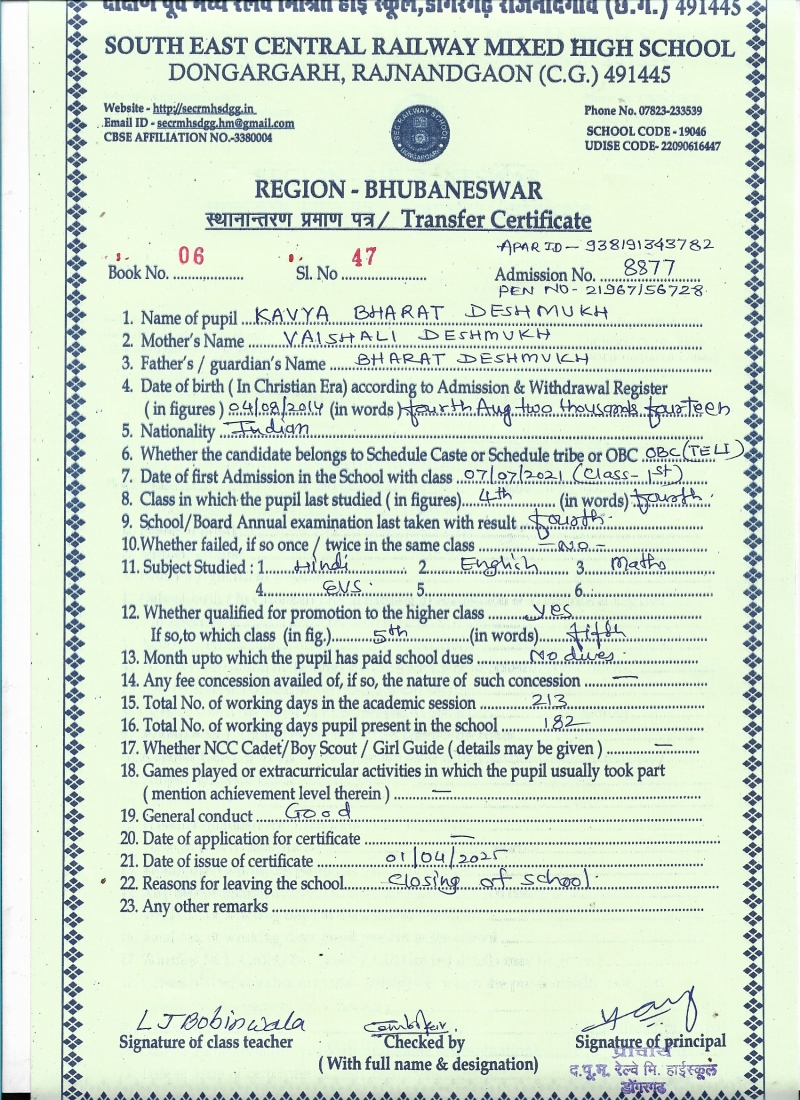 दक्षिण पूर्व मध्य रेलवे मिश्रित हाई स्कूल, डोंगरगढ़ राजनांदगाँव (छ.ग.) 491445
SOUTH EAST CENTRAL RAILWAY MIXED HIGH SCHOOL
DONGARGARH, RAJNANDGAON (C.G.) 491445
Website - http://secrmhsdgg.in
Email ID - secrmhsdgg.hm@gmail.com
CBSE AFFILIATION NO.-3380004
SEC RAILWAY SCHOOL
DONGARGARH
Phone No. 07823-233539
SCHOOL CODE - 19046
UDISE CODE- 22090616447
REGION - BHUBANESWAR
स्थानान्तरण प्रमाण पत्र / Transfer Certificate
APAR ID - 938191343782
Book No. 06 Sl. No 47 Admission No. 8877
PEN NO - 21967156728
1. Name of pupil KAVYA BHARAT DESHMUKH
2. Mother's Name VAISHALI DESHMUKH
3. Father's / guardian's Name BHARAT DESHMUKH
4. Date of birth ( In Christian Era) according to Admission & Withdrawal Register
( in figures ) 04/08/2014 (in words ) fourth Aug two thousands fourteen
5. Nationality Indian
6. Whether the candidate belongs to Schedule Caste or Schedule tribe or OBC OBC (TELI)
7. Date of first Admission in the School with class 07/07/2021 (Class - 1st)
8. Class in which the pupil last studied ( in figures) 4th (in words) fourth.
9. School/Board Annual examination last taken with result fourth.
10. Whether failed, if so once / twice in the same class - No -
11. Subject Studied : 1 Hindi 2 English 3. Maths
4. EVS. 5. 6.
12. Whether qualified for promotion to the higher class yes
If so, to which class (in fig.) 5th (in words) fifth
13. Month upto which the pupil has paid school dues No dues.
14. Any fee concession availed of, if so, the nature of such concession —
15. Total No. of working days in the academic session 213
16. Total No. of working days pupil present in the school 182
17. Whether NCC Cadet/Boy Scout / Girl Guide ( details may be given ) —
18. Games played or extracurricular activities in which the pupil usually took part
( mention achievement level therein ) —
19. General conduct Good
20. Date of application for certificate —
21. Date of issue of certificate 01/04/2025
22. Reasons for leaving the school closing of school.
23. Any other remarks
L J Bobinwala
Signature of class teacher Checked by Signature of principal
( With full name & designation)
प्राचार्य
द.पू.म. रेल्वे मि. हाईस्कूल
डोंगरगढ़